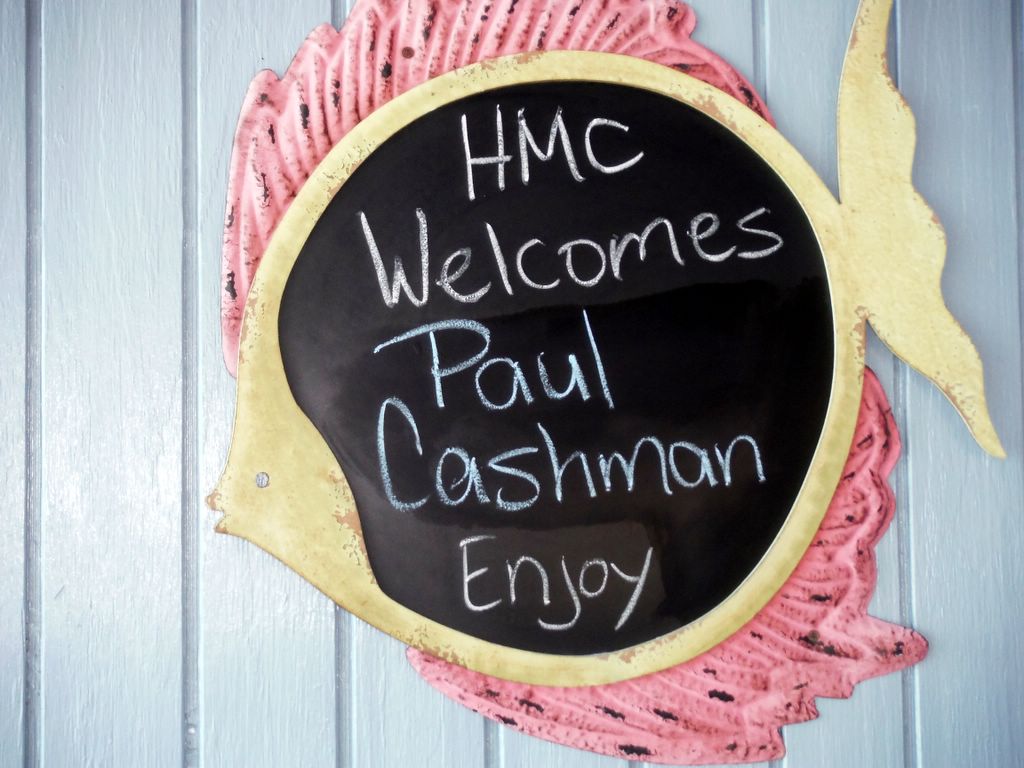 HMC
Welcomes
Paul
Cashman
Enjoy